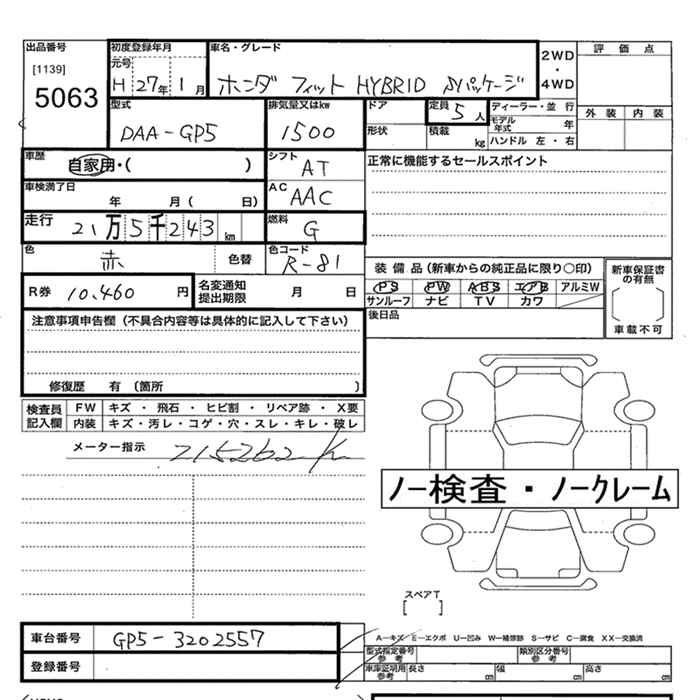 出品番号 初度登録年月 車名・グレード 2WD ・ 4WD 評価点
[1139] 元号
5063 H 27年 1月 ホンダ フィット HYBRID Sパッケージ
型式 排気量又はkw ドア 定員 5人 ディーラー・並行 外装 内装
DAA-GP5 1500 形状 積載 kg モデル年式 年
ハンドル 左・右
車歴 自家用・( ) シフト AT 正常に機能するセールスポイント
車検満了日 年 月( 日) AC AAC
走行 21万5千243km 燃料 G
色 赤 色替 色コード R-81
装備品(新車からの純正品に限り○印) 新車保証書の有無
R券 10,460円 名変通知提出期限 月 日 PS PW ABS エアB アルミW
サンルーフ ナビ TV カワ 車載不可
注意事項申告欄(不具合内容等は具体的に記入して下さい) 後日品
修復歴 有 〔箇所 〕
検査員記入欄 FW キズ ・ 飛石 ・ ヒビ割 ・ リペア跡 ・ X要
内装 キズ・汚レ・コゲ・穴・スレ・キレ・破レ
メーター指示 215262 k
ノー検査・ノークレーム
スペアT
[ ]
車台番号 GP5-3202557
A-キズ E-エクボ U-凹み W-補修跡 S-サビ C-腐食 XX-交換済
型式指定番号 参考 類別区分番号 参考
登録番号 車庫証明用 参考 長さ cm 幅 cm 高さ cm